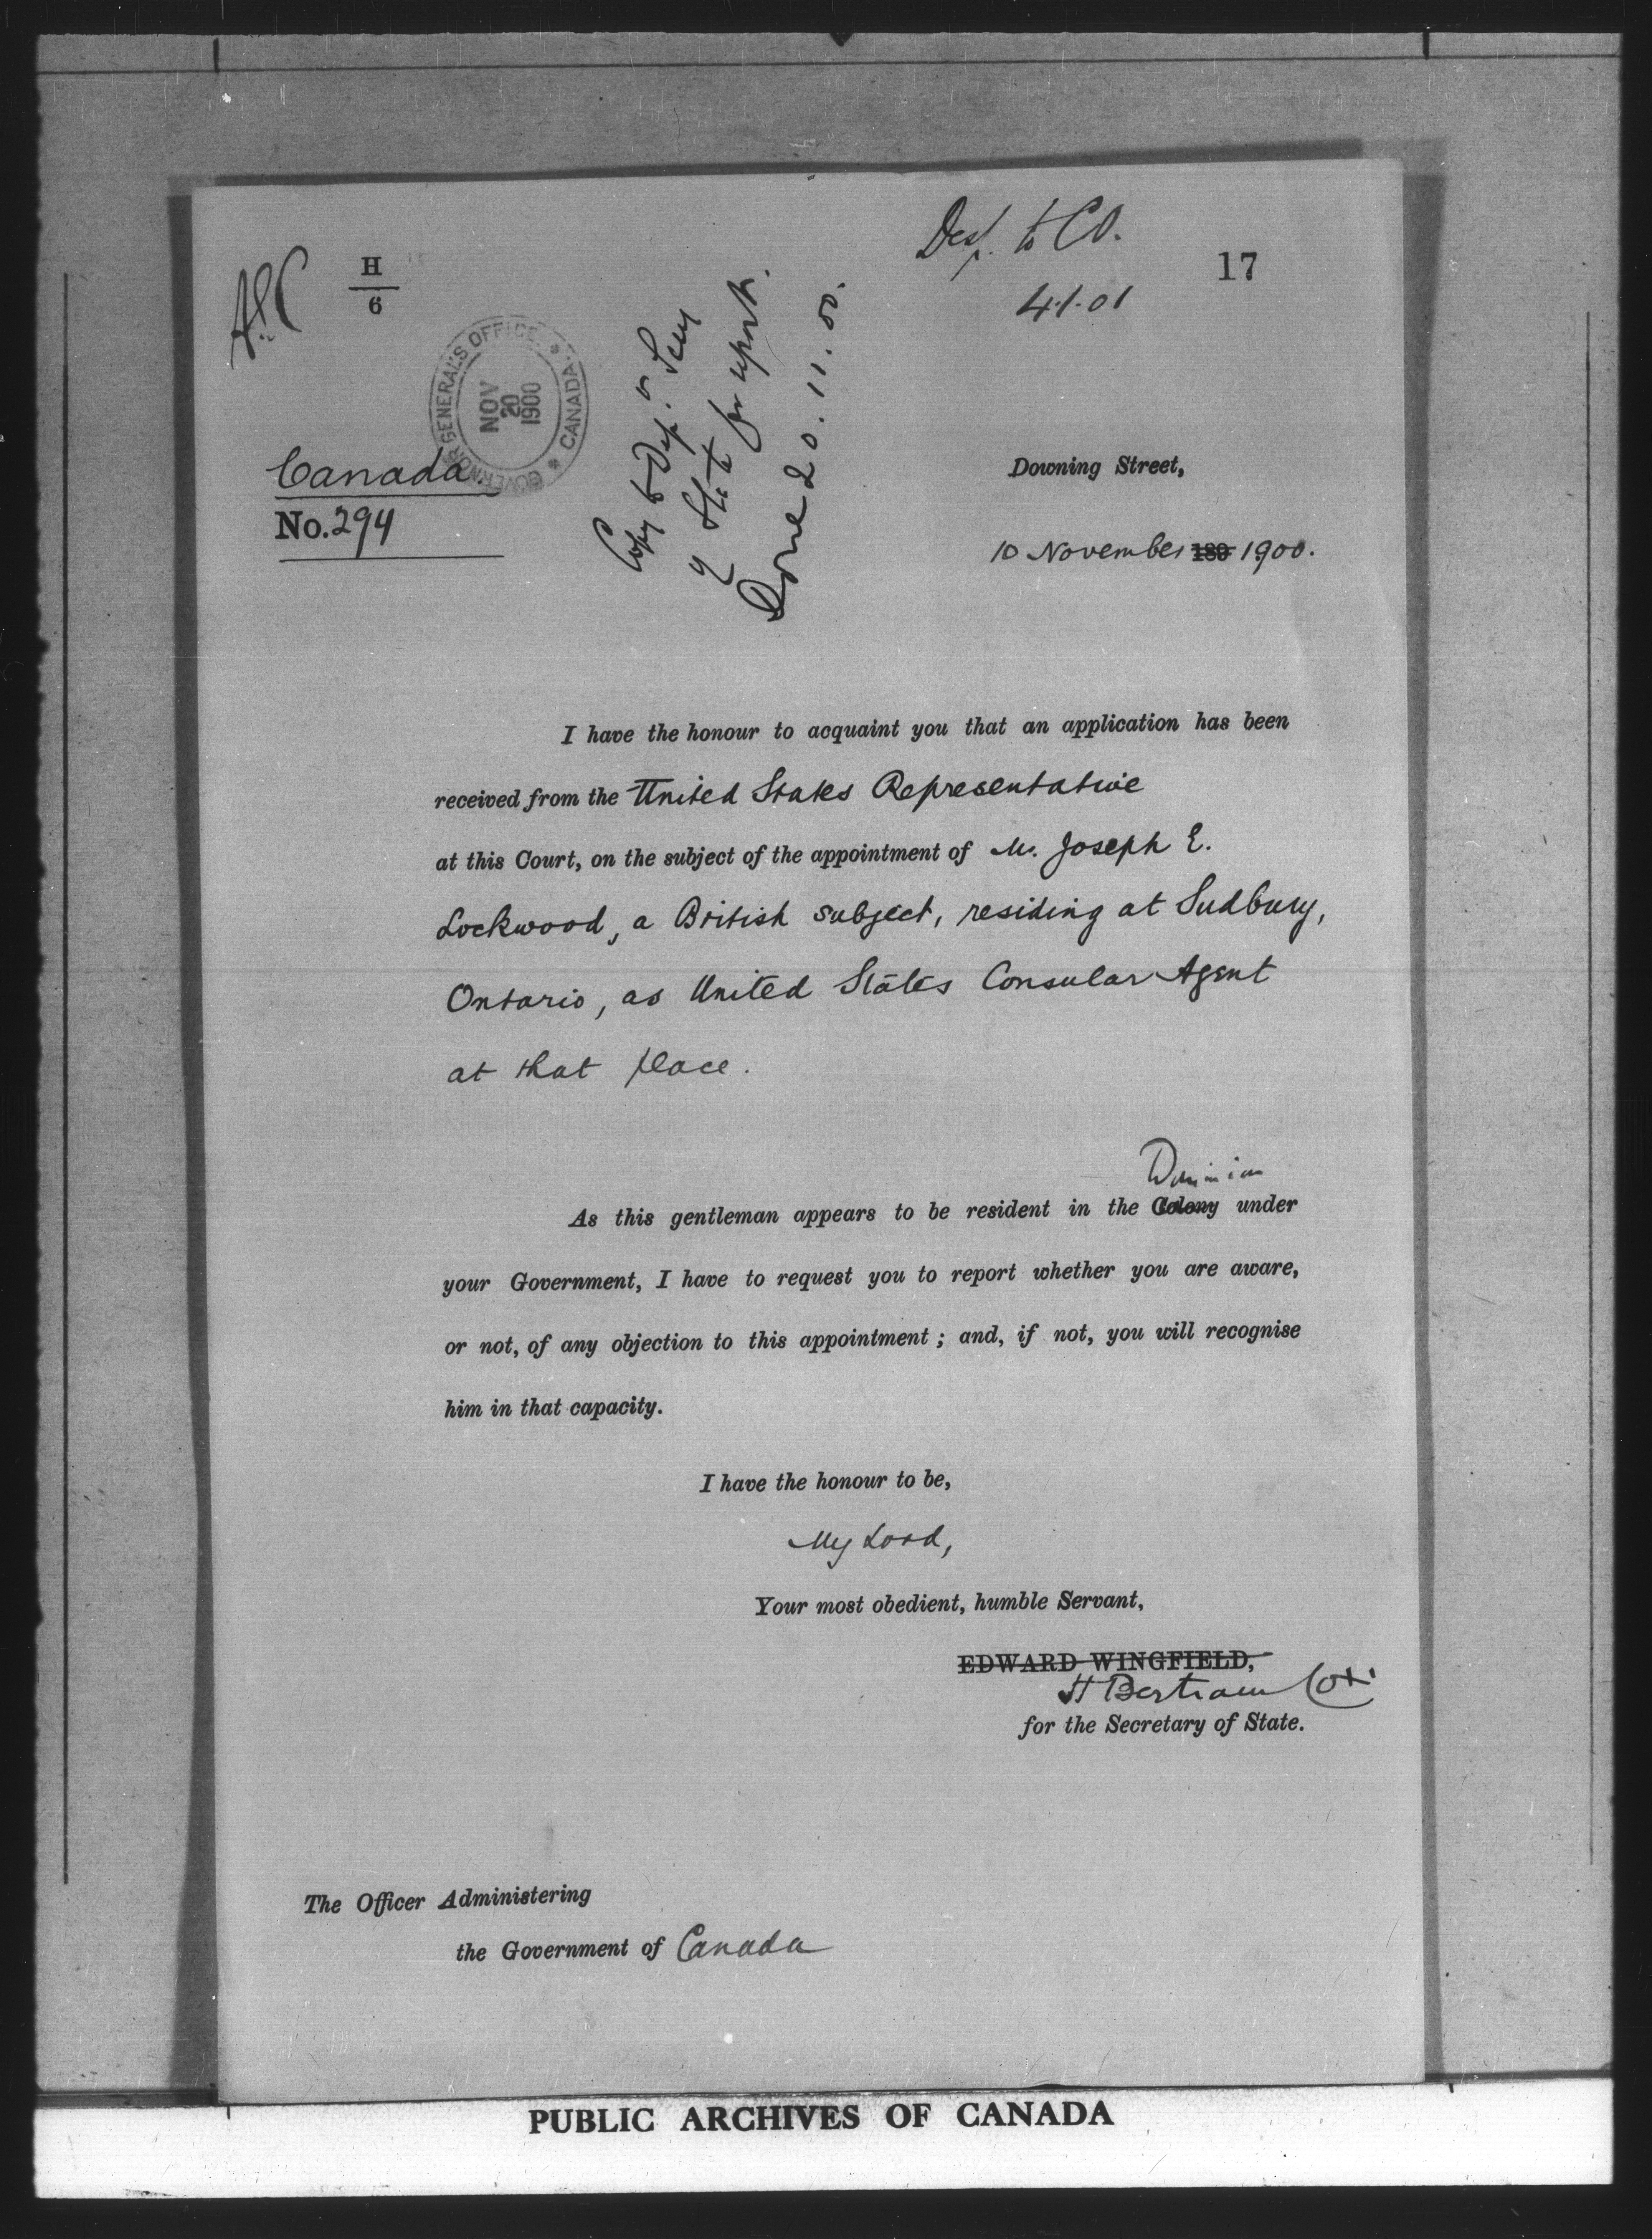 Desp. to CO.
17
H
6
4.1.01
GOVERNOR GENERAL'S OFFICE * CANADA *
NOV
20
1900
Copy to Dep. Secy
of State for report.
Done 20.11.00.
Canada.
No. 294
Downing Street,
10 November 189 1900.
I have the honour to acquaint you that an application has been
received from the United States Representative
at this Court, on the subject of the appointment of Mr. Joseph E.
Lockwood, a British subject, residing at Sudbury,
Ontario, as United States Consular Agent
at that place.
Dominion
As this gentleman appears to be resident in the Colony under
your Government, I have to request you to report whether you are aware,
or not, of any objection to this appointment; and, if not, you will recognise
him in that capacity.
I have the honour to be,
My Lord,
Your most obedient, humble Servant,
EDWARD WINGFIELD,
H Bertram Cox
for the Secretary of State.
The Officer Administering
the Government of Canada
PUBLIC ARCHIVES OF CANADA